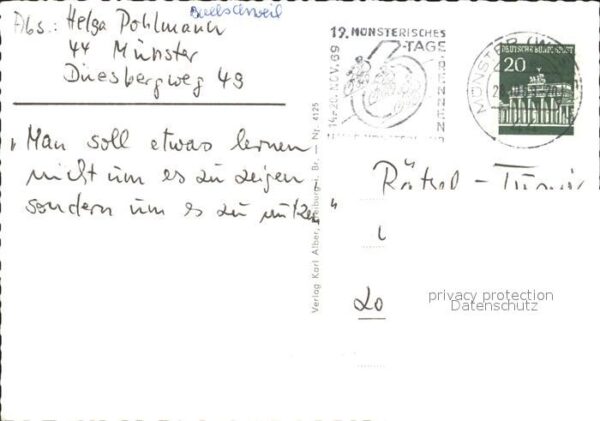 Abs.: Helga Pohlmann
44 Münster
Duesbergweg 49
"Man soll etwas lernen
nicht um es zu zeigen
sondern um es zu nutzen"
Verlag Karl Alber, Freiburg i. Br. — Nr. 4125
19. MÜNSTERISCHES
6-TAGE
RENNEN
14.-20. NOV. 69
MÜNSTER (WESTF)
DEUTSCHE BUNDESPOST
20
Rätsel - Turnier
Lo
privacy protection
Datenschutz